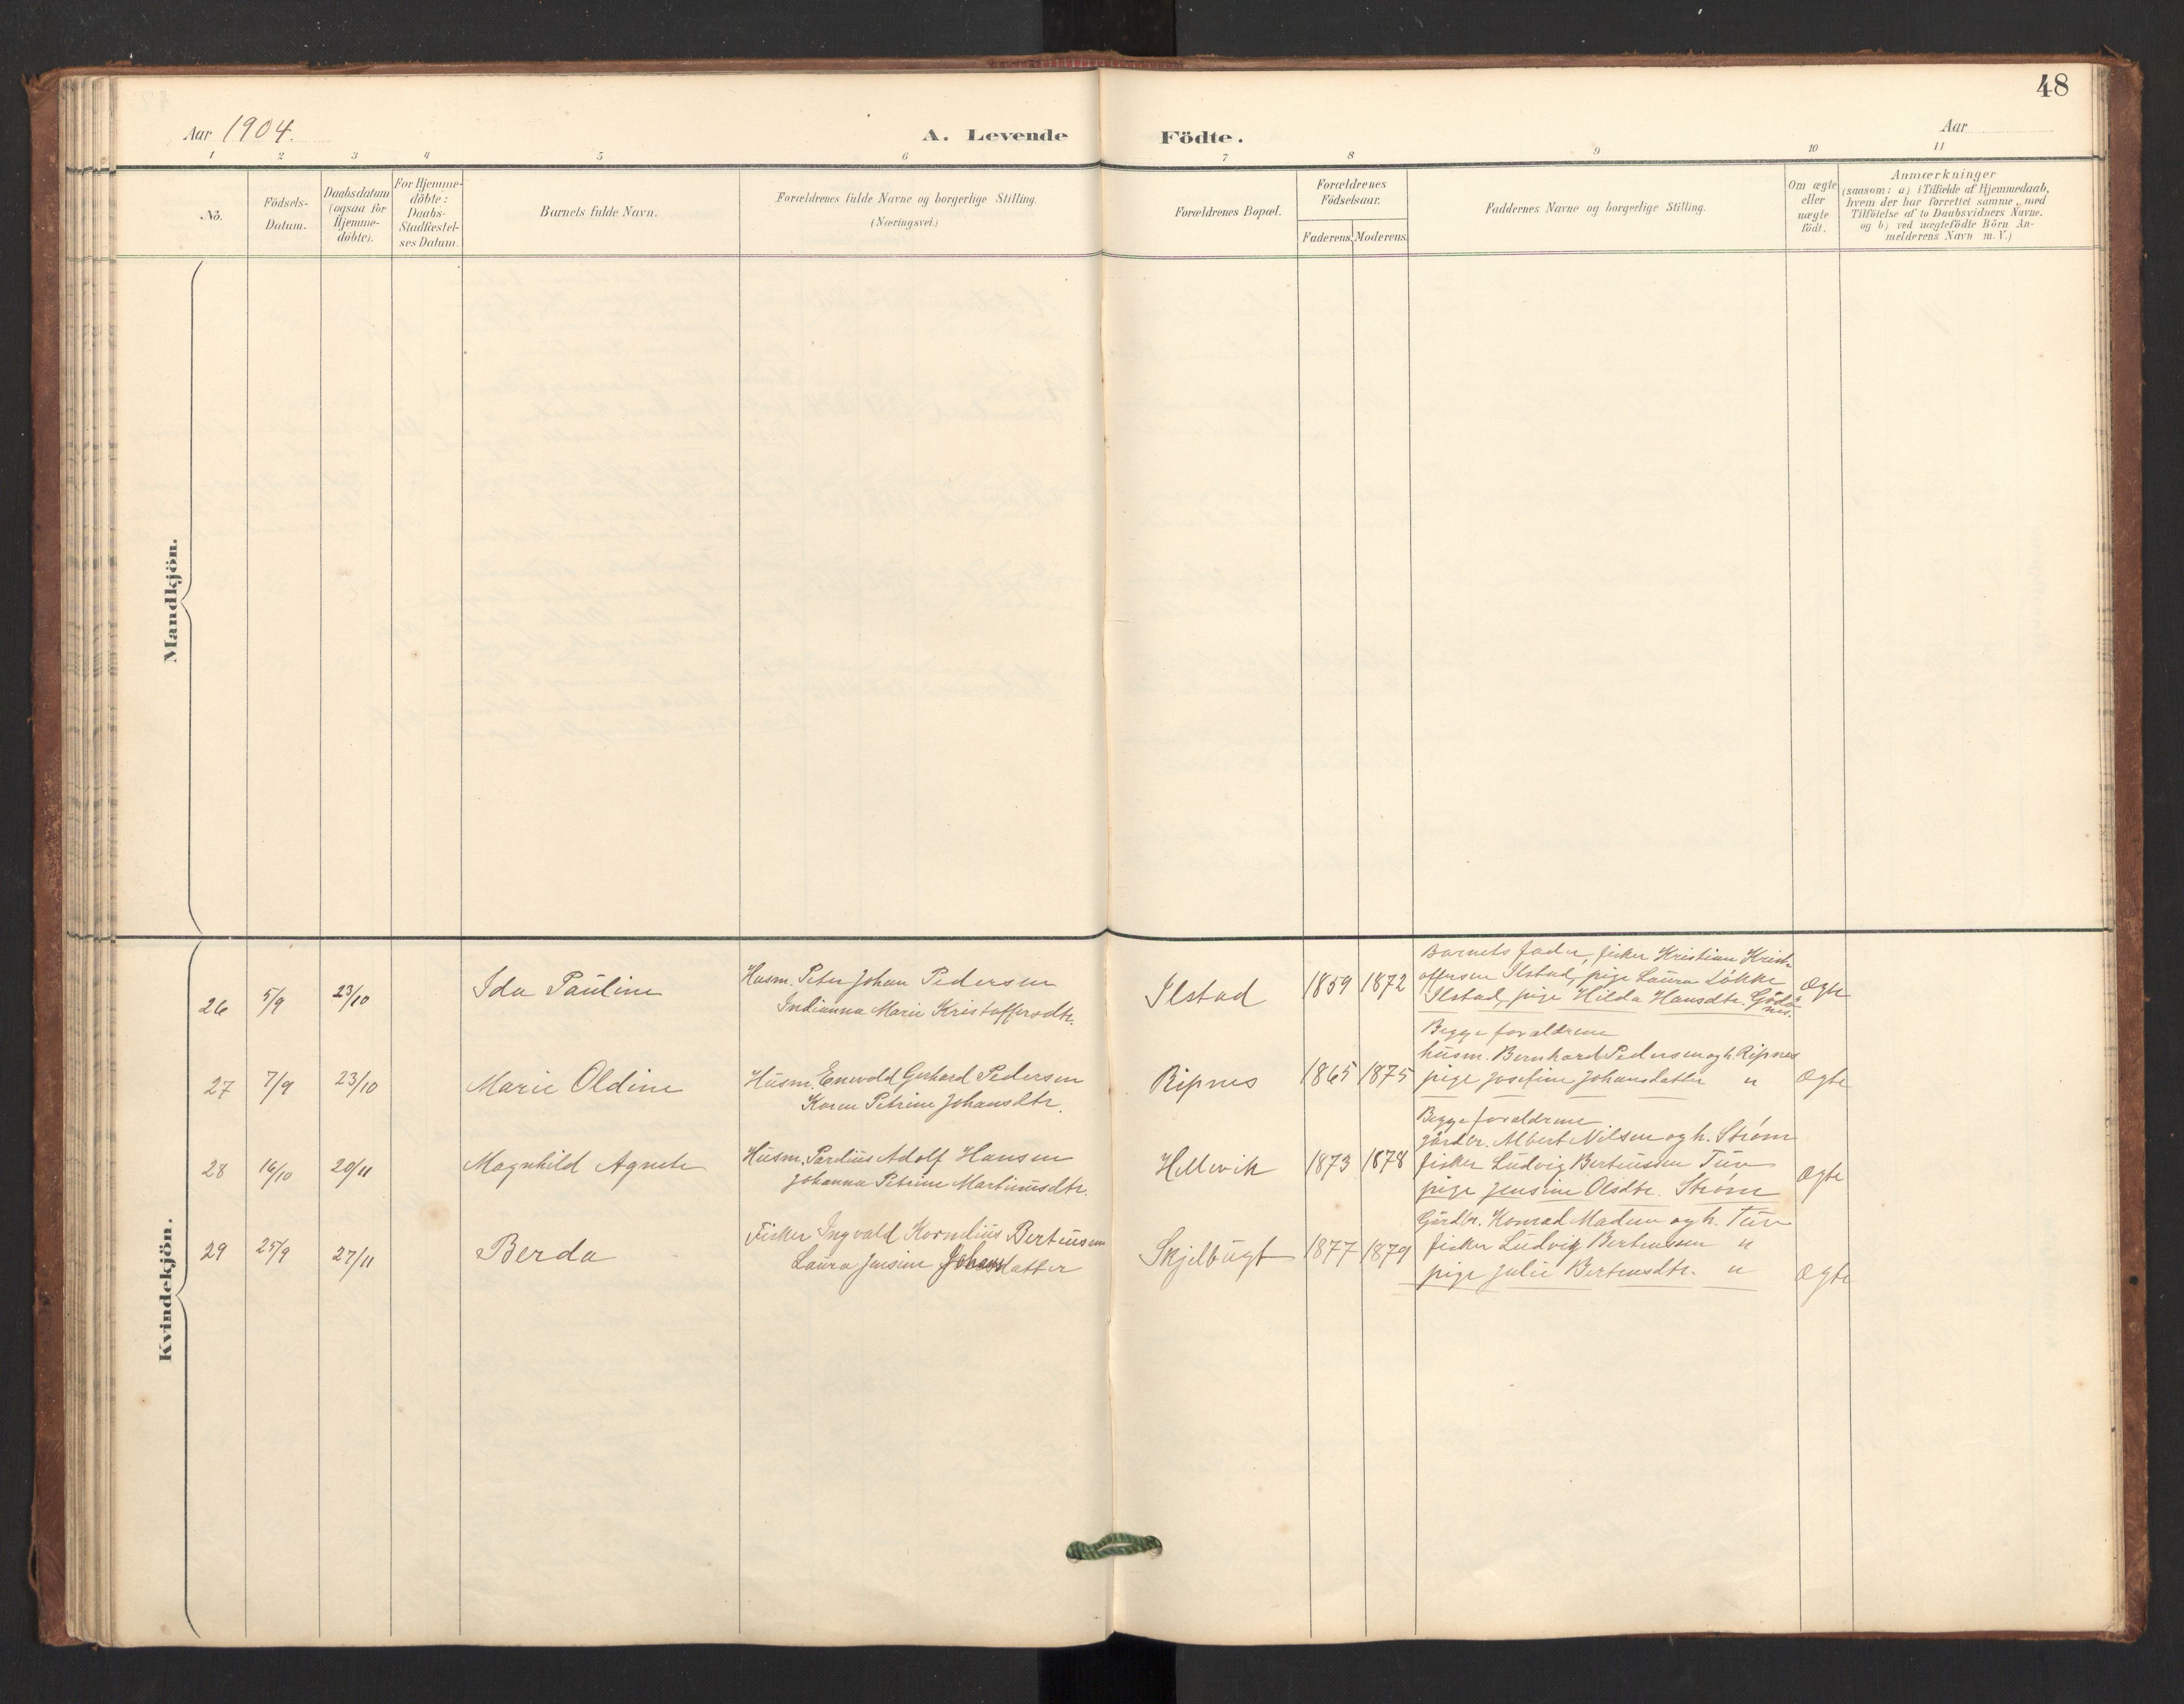 48
Aar 1904.
A. Levende Födte.
Aar
1 2 3 4 5 6 7 8 9 10 11
No.
Födsels-
Datum.
Daabsdatum
(ogsaa for
Hjemme-
döbte).
For Hjemme-
döbte:
Daabs-
Stadfæstel-
ses Datum.
Barnets fulde Navn.
Forældrenes fulde Navne og borgerlige Stilling.
(Næringsvei.)
Forældrenes Bopæl.
Forældrenes
Födselsaar.
Faderens. Moderens.
Faddernes Navne og borgerlige Stilling.
Om ægte
eller
uægte
födt.
Anmærkninger
(saasom: a) i Tilfælde af Hjemmedaab,
hvem der har forrettet samme, med
Tilföielse af to Daabsvidners Navne.
og b) ved uægtefödte Börn An-
melderens Navn m. V.)
Mandkjön.
Kvindekjön.
26 5/9 23/10 Ida Pauline
Husm. Peter Johan Pedersen
Indianna Marie Kristoffersdtr.
Ilstad 1859 1872
Barnets fader, fisker Kristian Krist-
offersen Ilstad, pige Laura Løkke
Ilstad, pige Hilda Hansdtr.
Ægte
27 7/9 23/10 Marie Oldine
Husm. Enevold Gerhard Pedersen
Karen Petrine Johansdtr.
Ripnes 1865 1875
Begge forældrene
husm. Bernhard Pedersen og h. Ripnes
pige Josefine Johansdatter "
Ægte
28 16/10 20/11 Magnhild Agnete
Husm. Pardius Adolf Hansen
Johanna Petrine Martinusdtr.
Hellevik 1873 1878
Begge forældrene
gårdbr. Albert Nilsen og h. Strøm
fisker Ludvig Berteussen Tuv
pige Jensine Olsdtr. Strøm
Ægte
29 25/9 27/11 Berda
Fisker Ingvald Kornelius Berteussen
Laura Jensine Johansdatter
Skjelbugt 1877 1879
Gårdbr. Konrad Madsen og h. Tuv
fisker Ludvig Berteussen "
pige Julie Berteusdtr. "
Ægte